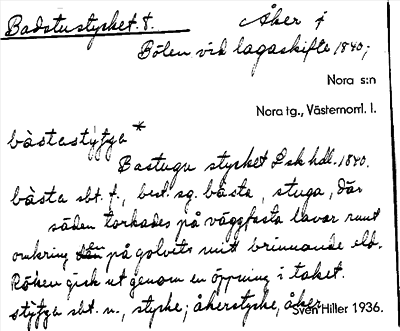 Badstustycket. t.
Åker i
Bölen vid lagaskifte 1840;
Nora s:n
Nora tg., Västernorrl. l.
bàstastýtja *
Bastugu stycket Lsk hdl. 1840.
bàsta sbt. f., best. sg. bàsta, stuga, där
säden torkades på väggfasta lavar runt
omkring den på golvets mitt brinnande eld.
Röken gick ut genom en öppning i taket.
stýtja sbt. n., stycke; åkerstycke, åker.
Sven Hiller 1936.